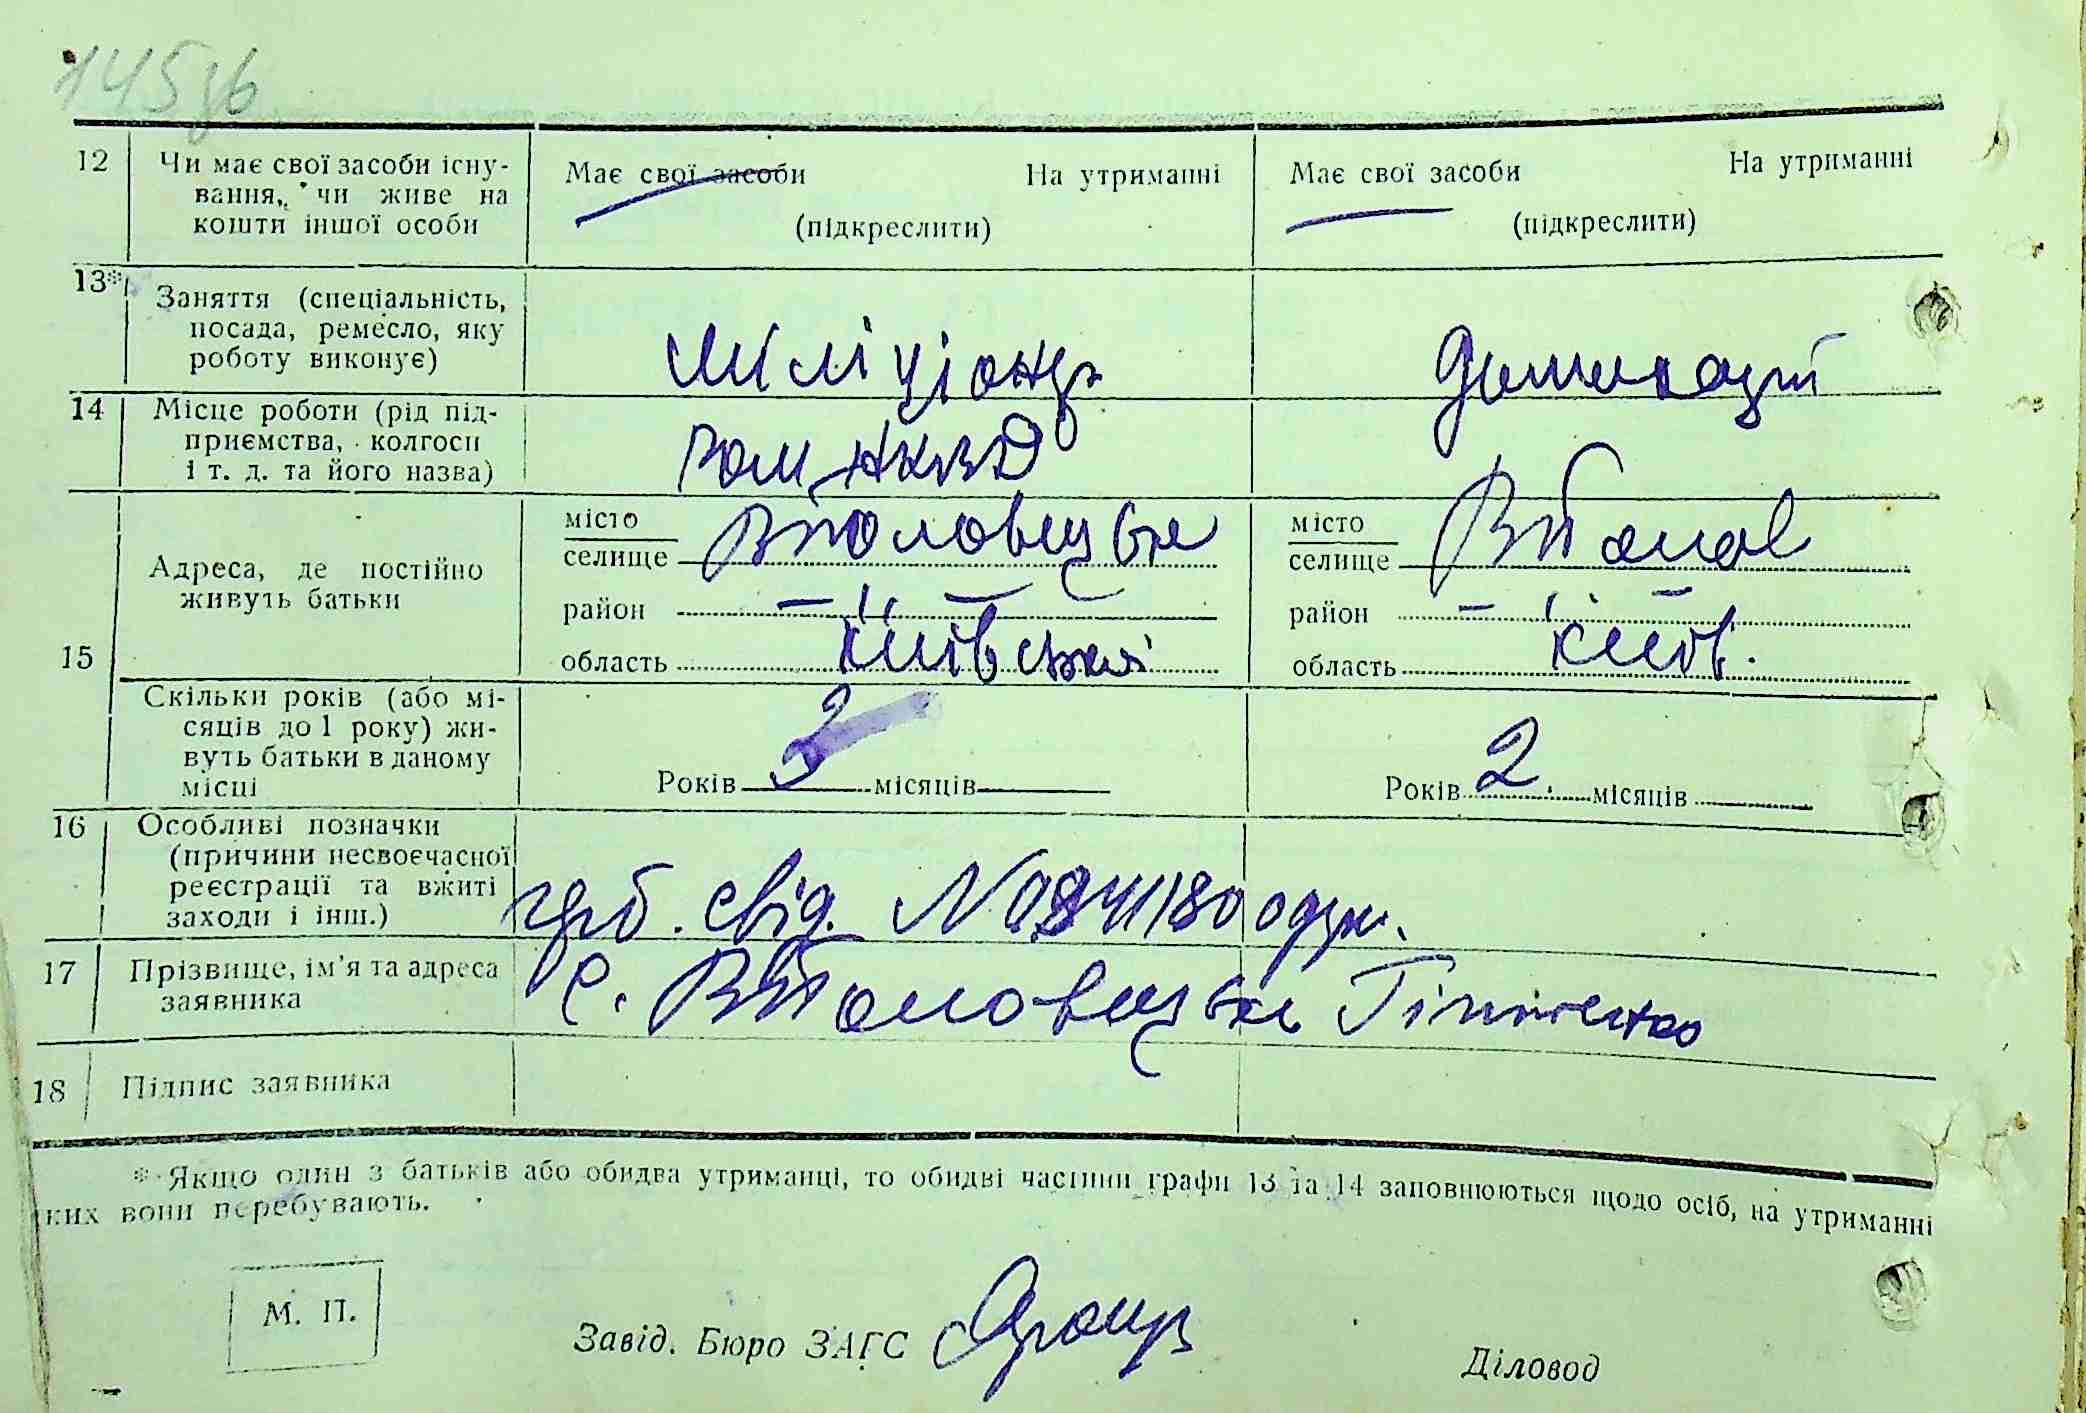 145зв
12 Чи має свої засоби існу- Має свої засоби На утриманні Має свої засоби На утриманні
вання, чи живе на
кошти іншої особи (підкреслити) (підкреслити)
13* Заняття (спеціальність,
посада, ремесло, яку міліціонер домогосп
роботу виконує)
14 Місце роботи (рід під-
приємства, колгосп НКВД
і т. д. та його назва)
15 Адреса, де постійно місто селище місто селище
живуть батьки район — " — район — " —
область Київська область Київ.
Скільки років (або мі-
сяців до 1 року) жи-
вуть батьки в даному
місці Років 3 місяців Років 2 місяців
16 Особливі позначки
(причини несвоєчасної
реєстрації та вжиті свід. N
заходи і інш.)
17 Прізвище, ім'я та адреса с.
заявника
18 Підпис заявника
* Якщо один з батьків або обидва утриманці, то обидві частини графи 13 та 14 заповнюються щодо осіб, на утриманні
ких вони перебувають.
М. П.
Завід. Бюро ЗАГС Діловод